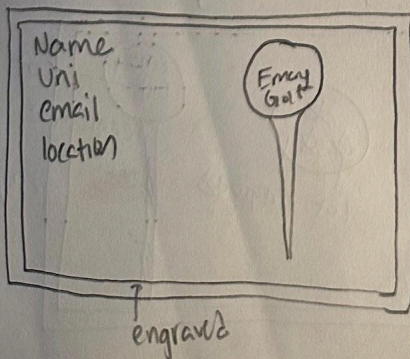 Name
Uni
email
location
Emay
Golf
engraved